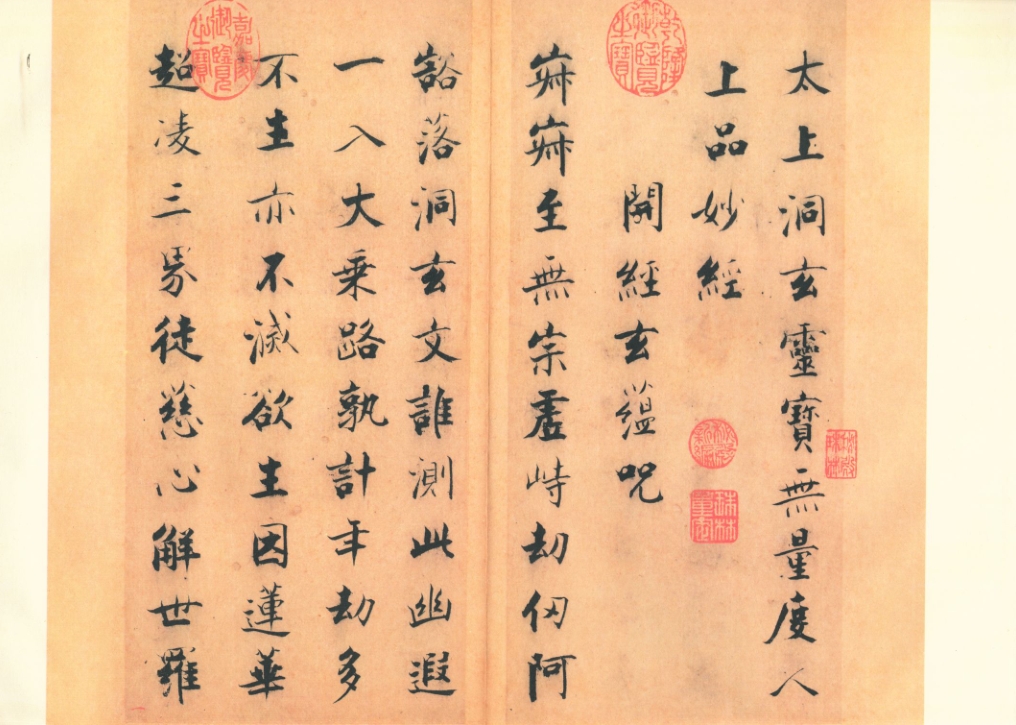 太上洞玄靈寶無量度人
上品妙經
開經玄蘊呪
寂寂至無宗虛峙劫仞阿
豁落洞玄文誰測此幽遐
一入大乘路孰計年劫多
不生亦不滅欲生因蓮華
超凌三界徒慈心解世羅
秘殿珠林
秘殿新編
珠林重定
乾隆御覽之寶
嘉慶御覽之寶